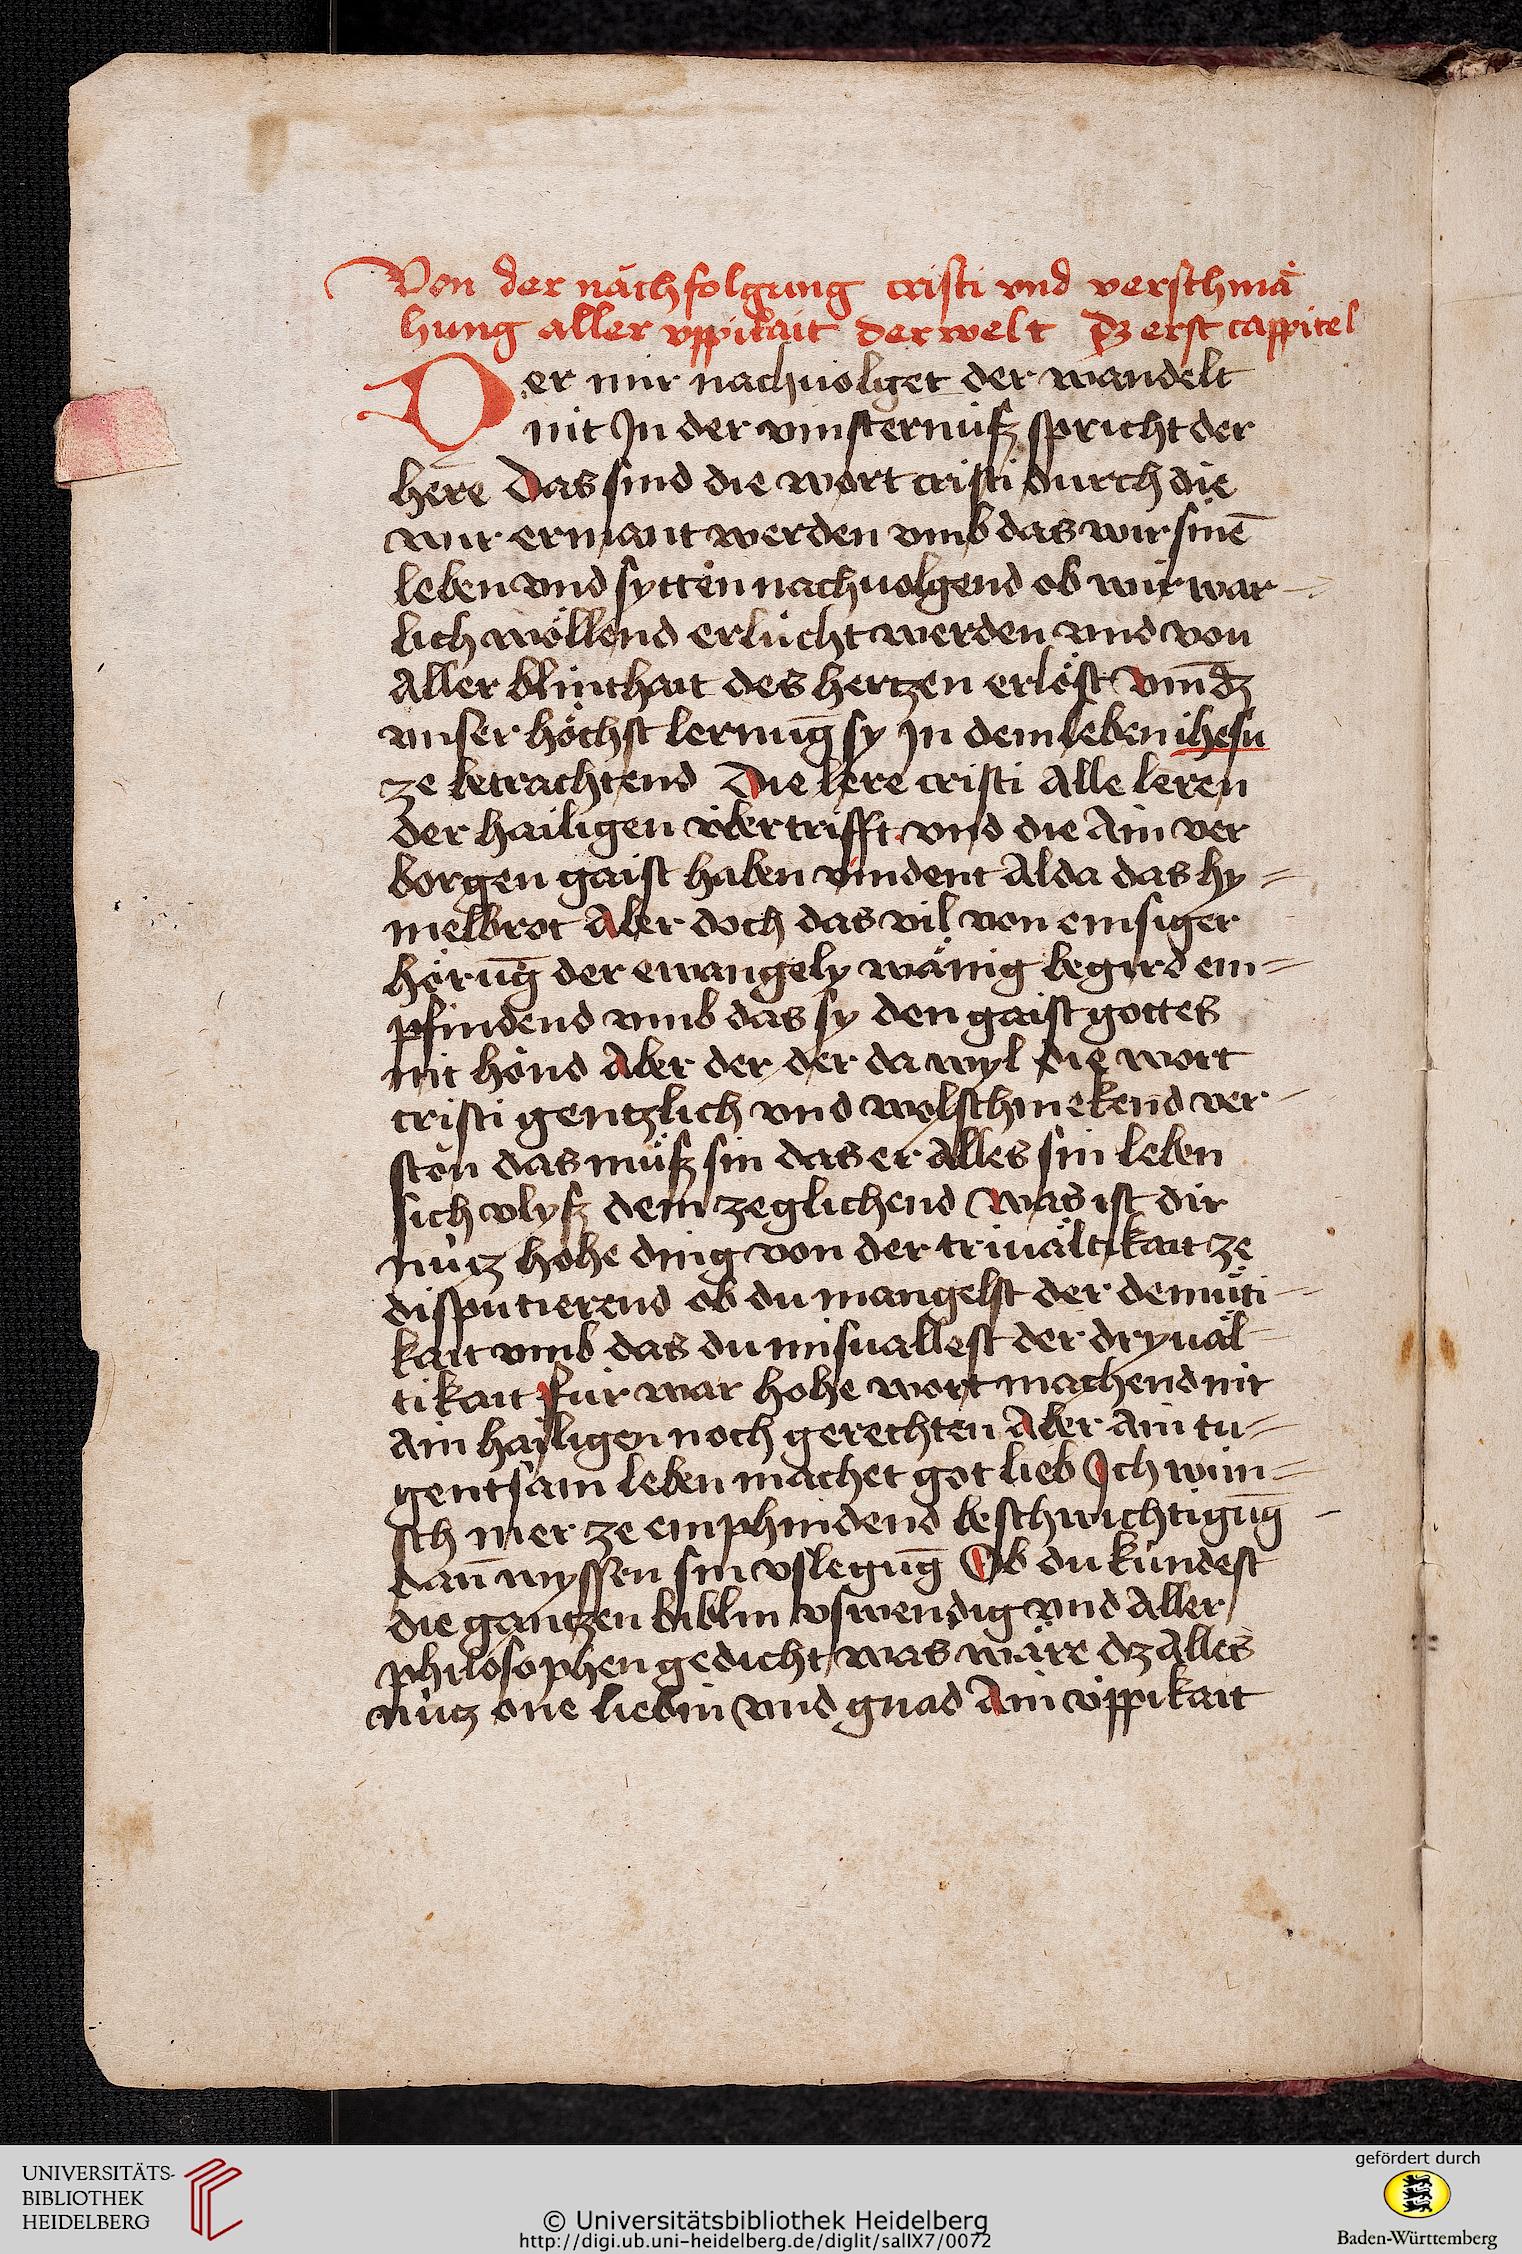 Von der nächfolgung cristi vnd verschmä
hung aller vppikait der welt dz erst cappitel
Der mir nachuolget der wandelt
nit Jn der vinsternuͤß spricht der
here Das sind die wort cristi durch die
wir ermant werden vmb das wir sinē
leben vnd syttën nachuolgend ob wir war-
lich wöllend erlücht werden vnd von
aller blinthait des hertzen erlöst vm̄ dz
vnser höchst lernūg sy Jn dem leben ihesu
ze betrachtend Die lere cristi alle leren
der hailigen v̈bertrifft vnd die ain ver
borgen gaist haben vindent alda das hy=
melbrot Aber doch das vil von emsiger
hörūg der ewangely wänig begird em=
pfindend vmb das sy den gaist gottes
nit hönd Aber der der da wyl die wort
cristi gentzlich vnd wolschmekend ver-
stën das muͤß sin das er alles sin leben
sich vlyß dem zeglichend Was ist dir
nütz hohe ding von der triuältikait ze
disputierend ob du mangelst der demuͤti-
kait vmb das du misuallest der dryuäl-
tikait für war hohe wort machend nit
ain hailigen noch gerechten Aber ain tu-
gentsam leben machet got lieb Ich wün=
sch mer ze emphindend beschwichtigūg -
dan̄ wyssen sin vslegūg Ob du kündest
die gantzen biblin vswendig vnd aller
philosophen gedicht was wäre dz alles
nütz one liebin vnd gnad Ain v̈ppikait
UNIVERSITÄTS-
BIBLIOTHEK
HEIDELBERG
© Universitätsbibliothek Heidelberg
http://digi.ub.uni-heidelberg.de/diglit/salIX7/0072
gefördert durch
Baden-Württemberg